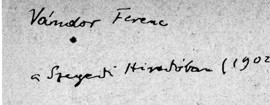 Vándor Ferenc
a Szegedi Hiradóban (1902